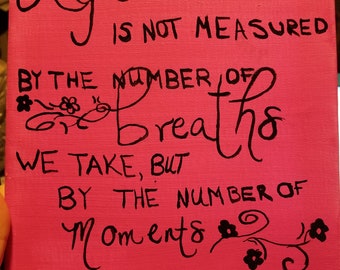 IS NOT MEASURED
BY THE NUMBER OF
breaths
WE TAKE, BUT
BY THE NUMBER OF
Moments